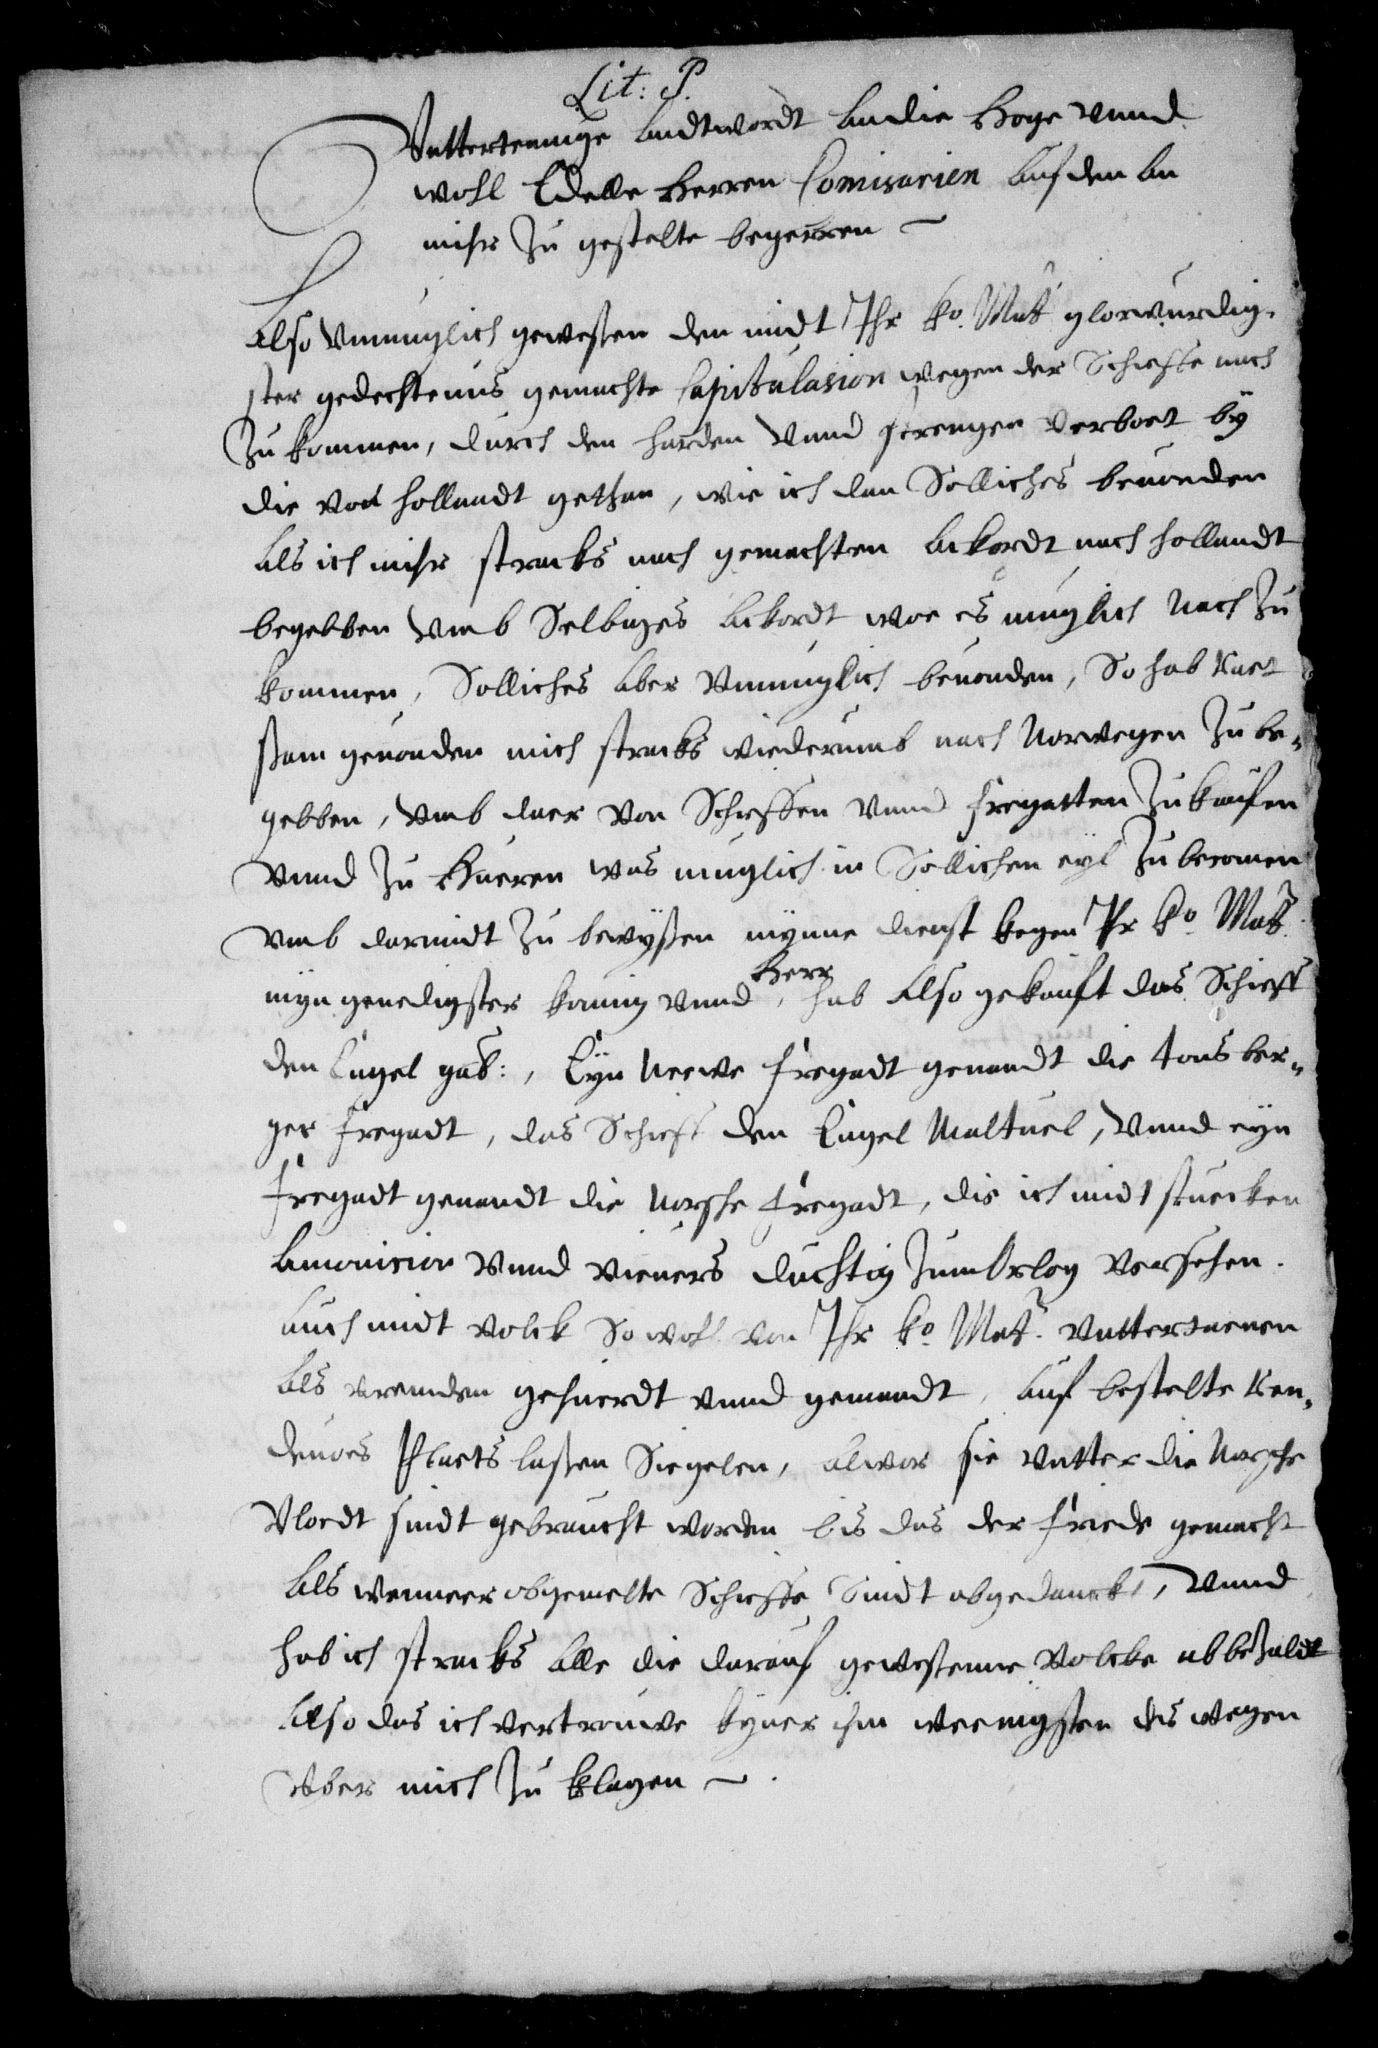 Lit: P.
Vnttertennige Andtwordt An die Hoge vnnd
wohl Edelle Herren Comisarien Auf den An
mihr zu gestelte begerren ~
Also Vnmuglich gewessen den midt Ihr ko. Matt glorwurdig-
ster gedechtenus gemachte Capitulasion wegen der Schieffe nach
Zu kommen, durch den harden Vnnd strengen Verboet by
die von Hollandt gethan, wie ich dan Solliches beuonden
Als ich mihr stracks nach gemachten Ackordt nach Hollandt
begebben Vmb Selbiges Ackordt woe es muglich Nach Zu
kommen, Solliches Aber Vnmuglich beuonden, So hab Raet
sam geuonden mich stracks wiederumb nach Norwegen Zu be„
gebben, Vmb daer Von Schieffen Vnnd Fregatten Zu kaufen
Vnnd Zu Hueren was muglich in Sollichen eyl Zu becomen
Vmb darmidt Zu bewyssen mynne dienst kegen Ihr ko. Matt.
myn genedigster konnig Vnnd Herr, hab Also gekauft das Schieff
den Engel gab:, Eyn Neewe Fregadt genandt die Tonsber„
ger Fregadt, das Schieff den Engel Maltuel, Vnnd eyn
Fregadt genandt die Norsche Fregadt, die ich midt stuecken
Amonision Vnnd Vieuers duchtig Zum Orlog Versehen.
Auch midt Volck So wohl von Ihr ko. Matt. Vnttertaenen
Als vremden gehuerdt vnnd gemandt, Auf bestelte Ren„
deuoes Plaets lassen Siegelen, Alwor sie Vntter die Norsche
Vloedt sindt gebraucht worden bis das der Friede gemacht
Als wenneer obgemelte Schieffe Sindt abgedanckt, Vnnd
hab ich stracks Alle die darauf gewessenne Volcke ab bezaldt
Also das ich Vertrouwe kyner ihm weenigsten des wegen
Vber mich Zu klagen ~.